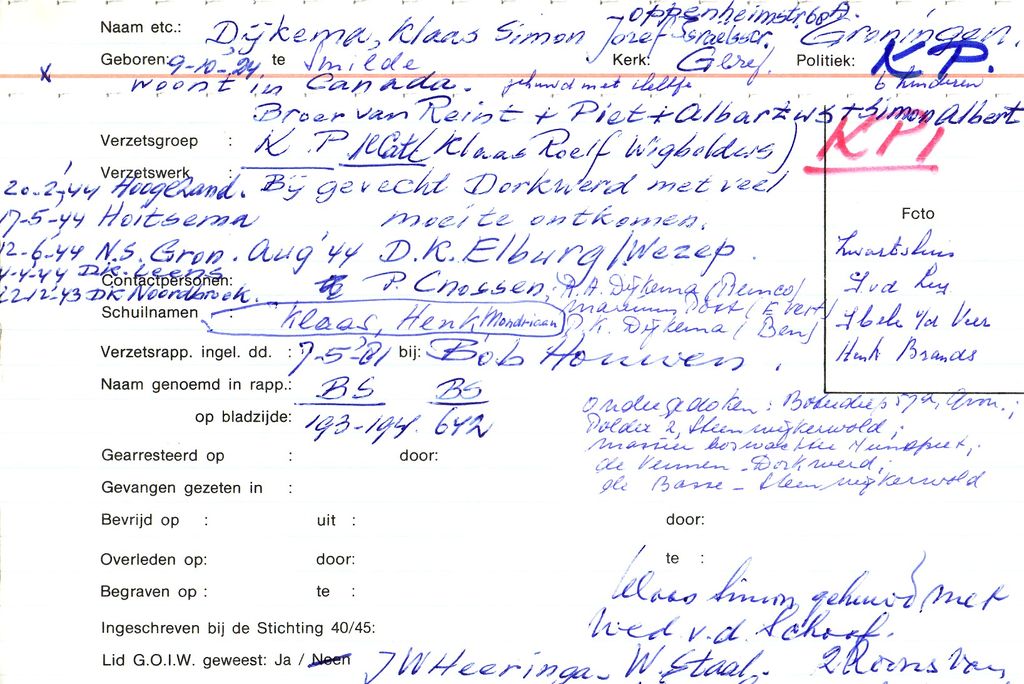 Oppenheimstr 60A.
Naam etc.: Dijkema, Klaas Simon Jozef Israëlsstr. Groningen.
Geboren: 9-10-'24 te Smilde Kerk: Geref. Politiek: K.P.
x woont in Canada. gehuwd met 6 kinderen
Broer van Reint + Piet + Albarzws + Simon Albert
Verzetsgroep : K.P. Klaas Roelf Wigboldus) KP1
Verzetswerk :
20-2-'44 Hoogezand. Bij gevecht Dorkwerd met veel
17-5-44 Hoitsema moeite ontkomen. Foto
12-6-'44 N.S. Gron. Aug '44 D.K. Elburg/Wezep. Zwartsluis
4-4-44 D.K. Leens
Contactpersonen: P. Cnossen, R.A. Dijkema (Remco)
12-12-'43 DK Noordbroek. Marinus Post (Evert)
Schuilnamen : Klaas, Henk Mondriaan P.K. Dijkema (Ben)
Henk Brands
Verzetsrapp. ingel. dd. : 7-5-'81 bij: Bob Houwen.
Naam genoemd in rapp.: BS BS
op bladzijde: 193-194. 642
ondergedoken: Boterdiep Gron.;
Polder 2, Steenwijkerwold;
Gearresteerd op : door:
de Vennen - Dorkwerd;
Gevangen gezeten in :
de Basse - Steenwijkerwold
Bevrijd op : uit : door:
Overleden op: door: te :
Begraven op : te :
Klaas Simon gehuwd met
Ingeschreven bij de Stichting 40/45:
Wed v.d. Schoof.
Lid G.O.I.W. geweest: Ja / Neen JW Heeringa - W. Staal.